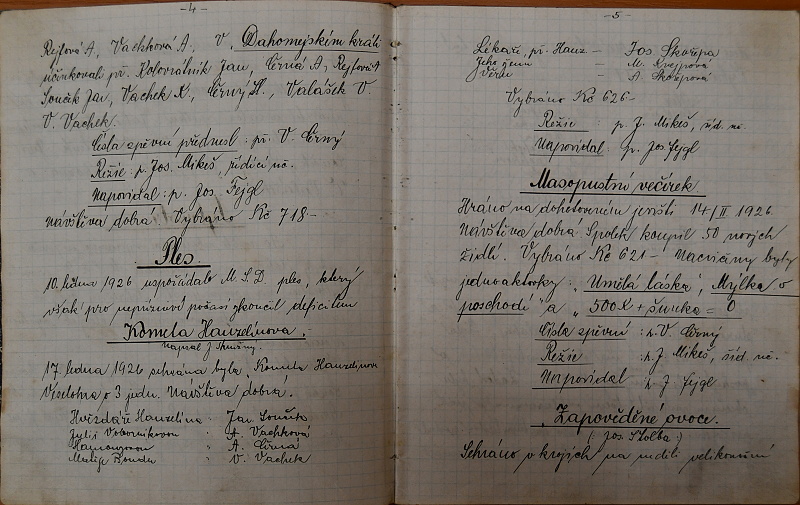 -4-
Rejfová A, Vachková A, V, Dahomejském králi
účinkovali pp. Kolovrátník Jan, Černá A, Rejfová A
Souček Jan, Vachek K, Černý Sl., Valášek V.
V. Vachek.
Čísla zpěvní přednesl: p. V. Černý
Režie: p. Jos. Mikeš, řídící uč.
Napovídal: p. Jos. Fejgl
Návštěva dobrá. Vybráno Kč 718-
Ples.
10. ledna 1926 uspořádalo M.S.D ples, který
však pro nepříznivé počasí skončil deficitem
Kometa Hauzdinova.
napsal J
17. ledna 1926 sehrána byla „Kometa Hauzdinova
Veselohra o 3 jedn. Návštěva dobrá.
Hvězdáře Hauzdina: Jan Souček
A. Vachková
A. Černá
Matěje Bendu V. Vachek
-5-
Lékaře, př. Hauz. - Jos. Skořepa
Jeho ženu - M.
Dceru - A Skořepová
Vybráno Kč 626-
Režie: p. J. Mikeš, říd. uč.
Napovídal: p. Jos Fejgl
Masopustní večírek
Hráno na dohotoveném jevišti 14/II 1926.
Návštěva dobrá. Spolek koupil 50 nových
židlí. Vybráno Kč 621- Nacvičeny byly
jednoaktovky: „Umělá láska", Mýlka v
poschodí" a „500% + šunka = 0
Čísla zpěvní: p. V Černý
Režie: p. J Mikeš, říd. uč.
Napovídal p. J Fejgl
„Zapověděné ovoce."
(: Jos. Štolba :)
Sehráno v krojích na neděli velikonoční